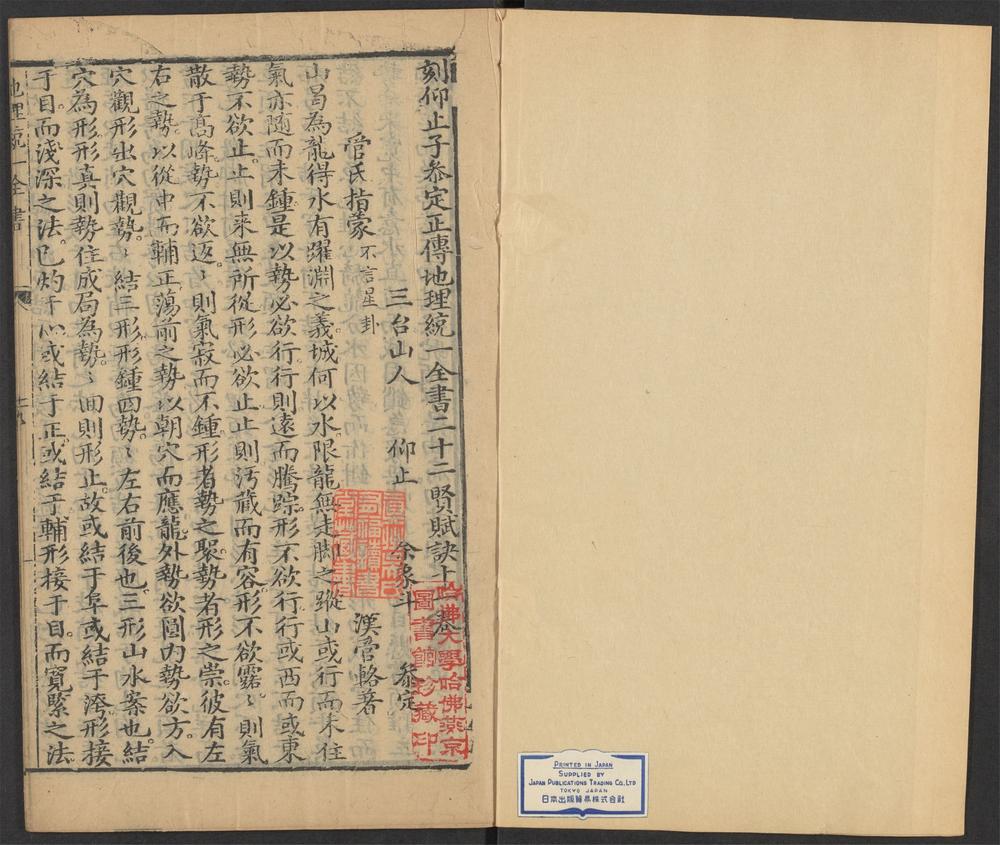 刻仰止子叅定正傳地理統一全書二十二賢賦訣十一卷
三台山人 仰止 余象斗 叅定
管氏指蒙 不言星卦 漢管輅著
山曷為龍得水有躍淵之義城何以水限龍無走脚之蹤山或行而未住
氣亦隨而未鍾是以勢必欲行行則遠而騰踪形不欲行行或西而或東
勢不欲止止則来無所從形必欲止止則污藏而有容形不欲露〻則氣
散于髙峰勢不欲返〻則氣寂而不鍾形者勢之聚勢者形之崇彼有左
右之勢以從中而輔正蕩前之勢以朝穴而應龍外勢欲圓内勢欲方入
穴觀形出穴觀勢〻結三形形鍾四勢〻左右前後也三形山水案也結
穴為形形真則勢住成局為勢〻回則形止故或結于阜或結于洿形接
于目而淺深之法已灼于心或結于正或結于輔形接于目而寬緊之法
地理統一全書
哈佛大學哈佛燕京
圖書館珍藏印
PRINTED IN JAPAN
SUPPLIED BY
JAPAN PUBLICATIONS TRADING CO., LTD
TOKYO JAPAN
日本出版貿易株式会社